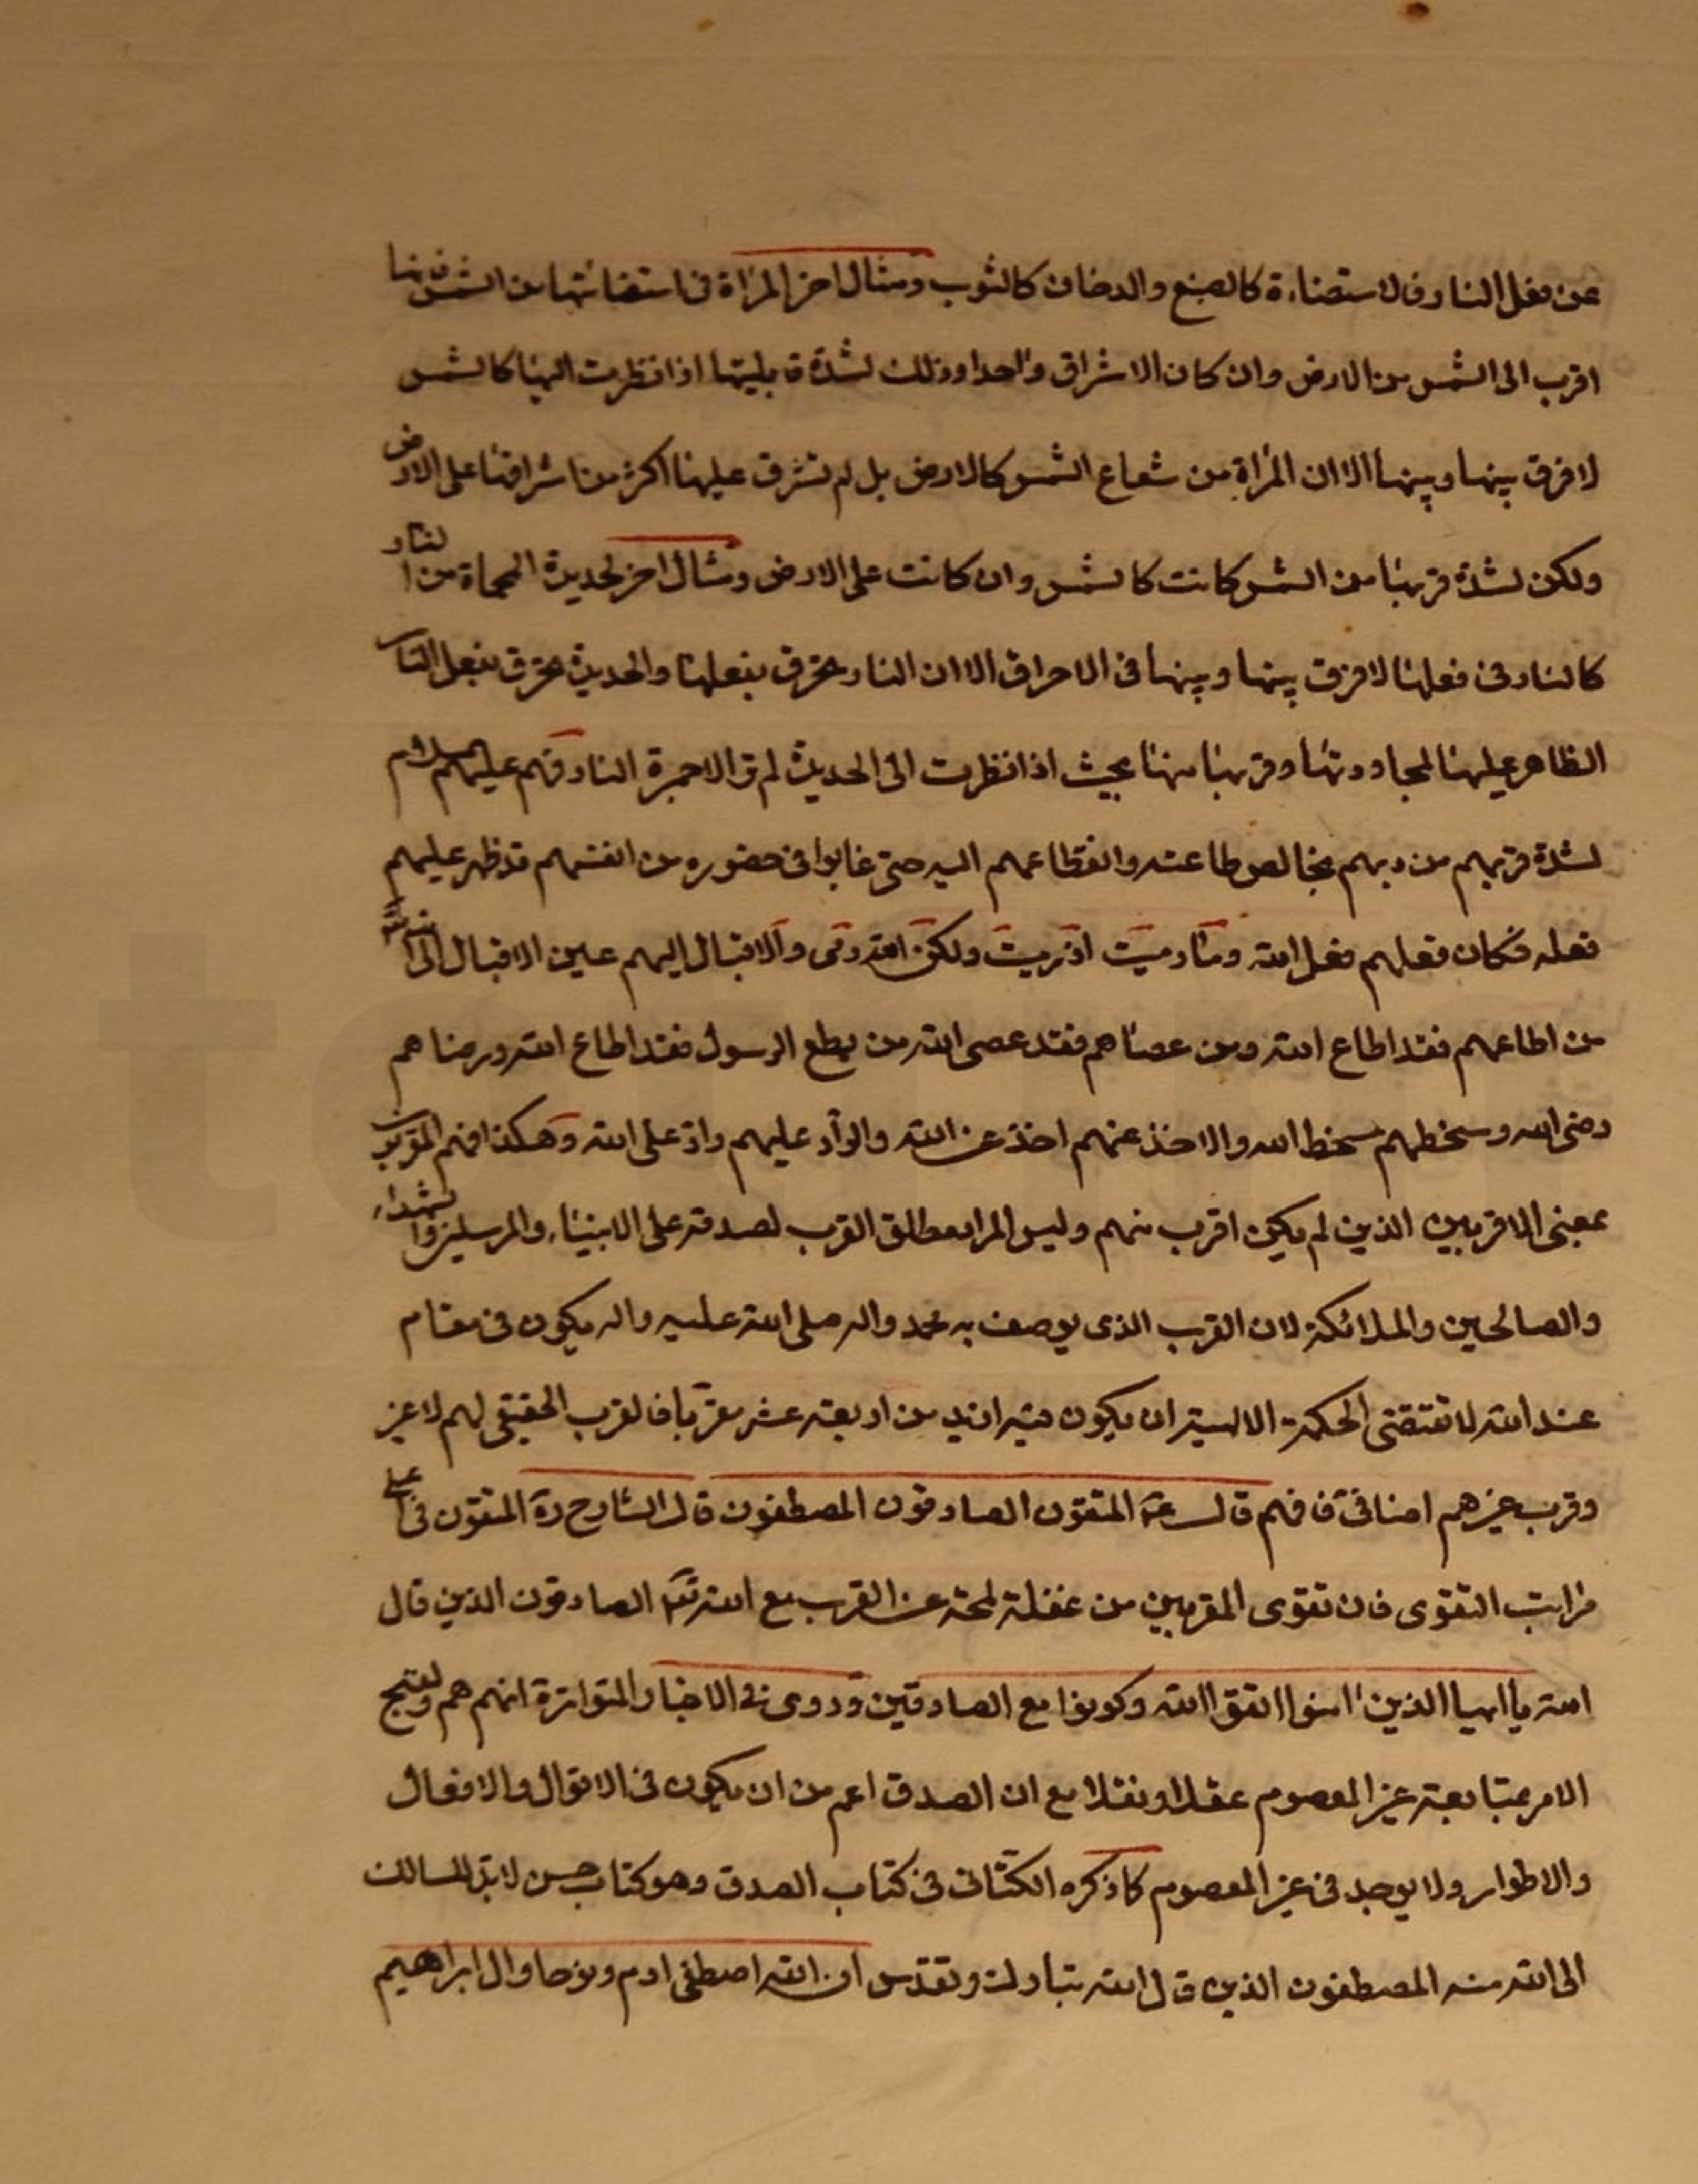 عن فعل النار فالاستضاءة كالصبغ والدخان كالثوب ومثال اخر المراة فى استضائتها من الشمس فانها
اقرب الى الشمس من الارض وان كان الاشراق واحدا وذلك لشدة قابليتها اذا نظرت اليها كالشمس
لا فرق بينها وبينها الا ان المراة من شعاع الشمس كالارض بل لم تشرق عليها اكثر من اشراقها على الارض
ولكن لشدة قربها من الشمس كانت كالشمس وان كانت على الارض ومثال اخر الحديدة المحماة من النار
كالنار فى فعلها لا فرق بينها وبينها فى الاحراق الا ان النار تحرق بفعلها والحديدة تحرق بفعل النار
الظاهر عليها لمجاورتها وقربها منها بحيث اذا نظرت الى الحديدة لم تر الا حمرة النار فهم عليهم السلام
لشدة قربهم من ربهم بخالص طاعته وانقطاعهم اليه حتى غابوا فى حضوره من انفسهم قد ظهر عليهم
فعله فكان فعلهم فعل الله وما رميت اذ رميت ولكن الله رمى والاقبال اليهم عين الاقبال الى الله
من اطاعهم فقد اطاع الله ومن عصاهم فقد عصى الله من يطع الرسول فقد اطاع الله ورضاهم
رضى الله وسخطهم سخط الله والاخذ عنهم اخذ عن الله والراد عليهم راد على الله وهكذا فهم المقربون
بمعنى الاقربين الذين لم يكن اقرب منهم وليس المراد مطلق القرب لصدقه على الانبياء والمرسلين والشهداء
والصالحين والملائكة لان القرب الذى يوصف به محمد واله صلى الله عليه واله يكون فى مقام
عند الله لا تقتضى الحكمة الالهية ان يكون فيه ازيد من اربعة عشر مقربا فالقرب الحقيقى لهم لا غير
وقرب غيرهم اضافى فافهم قال ع المتقون الصادقون المصطفون قال الشارح ره المتقون فى اعلى
مراتب التقوى فان تقوى المقربين من غفلة لمحة عن القرب مع الله تعالى الصادقون الذين قال
الله يا ايها الذين امنوا اتقوا الله وكونوا مع الصادقين وروى فى الاخبار المتواترة انهم هم ولقبح
الامر بمتابعة غير المعصوم عقلا ونقلا مع ان الصدق اعم من ان يكون فى الاقوال والافعال
والاطوار ولا يوجد فى غير المعصوم كما ذكره الكتانى فى كتاب الصدق وهو كتاب حسن لا بد للسالك
الى الله منه المصطفون الذين قال الله تبارك وتقدس ان الله اصطفى ادم ونوحا وال ابراهيم